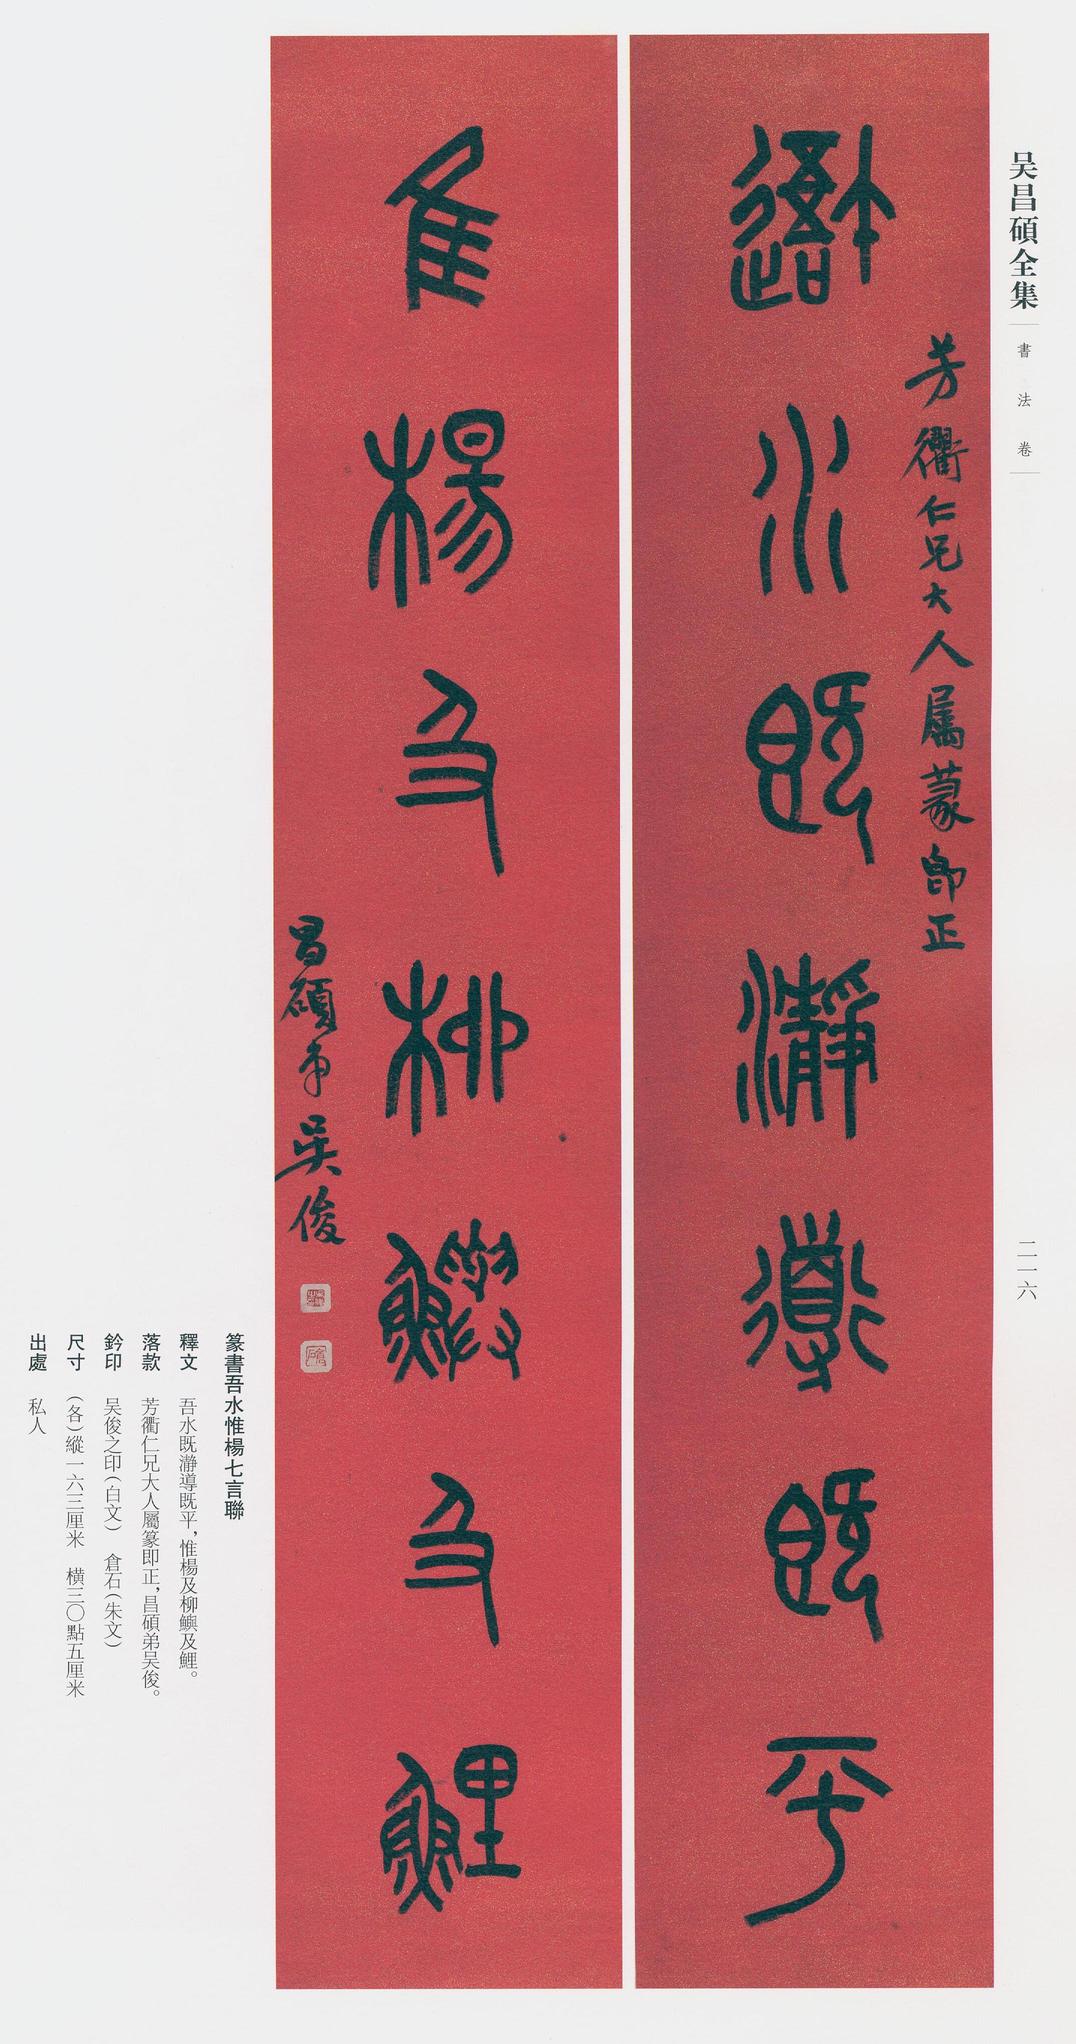 吴昌碩全集
書法卷
二一六
芳衢仁兄大人属篆即正
吾水既瀞導既平
隹楊及柳鱮及鯉
昌碩弟吴俊
篆書吾水惟楊七言聯
釋文 吾水既瀞導既平，惟楊及柳鱮及鯉。
落款 芳衢仁兄大人屬篆即正，昌碩弟吴俊。
鈐印 吴俊之印（白文） 倉石（朱文）
尺寸 （各）縱一六三厘米 橫三〇點五厘米
出處 私人